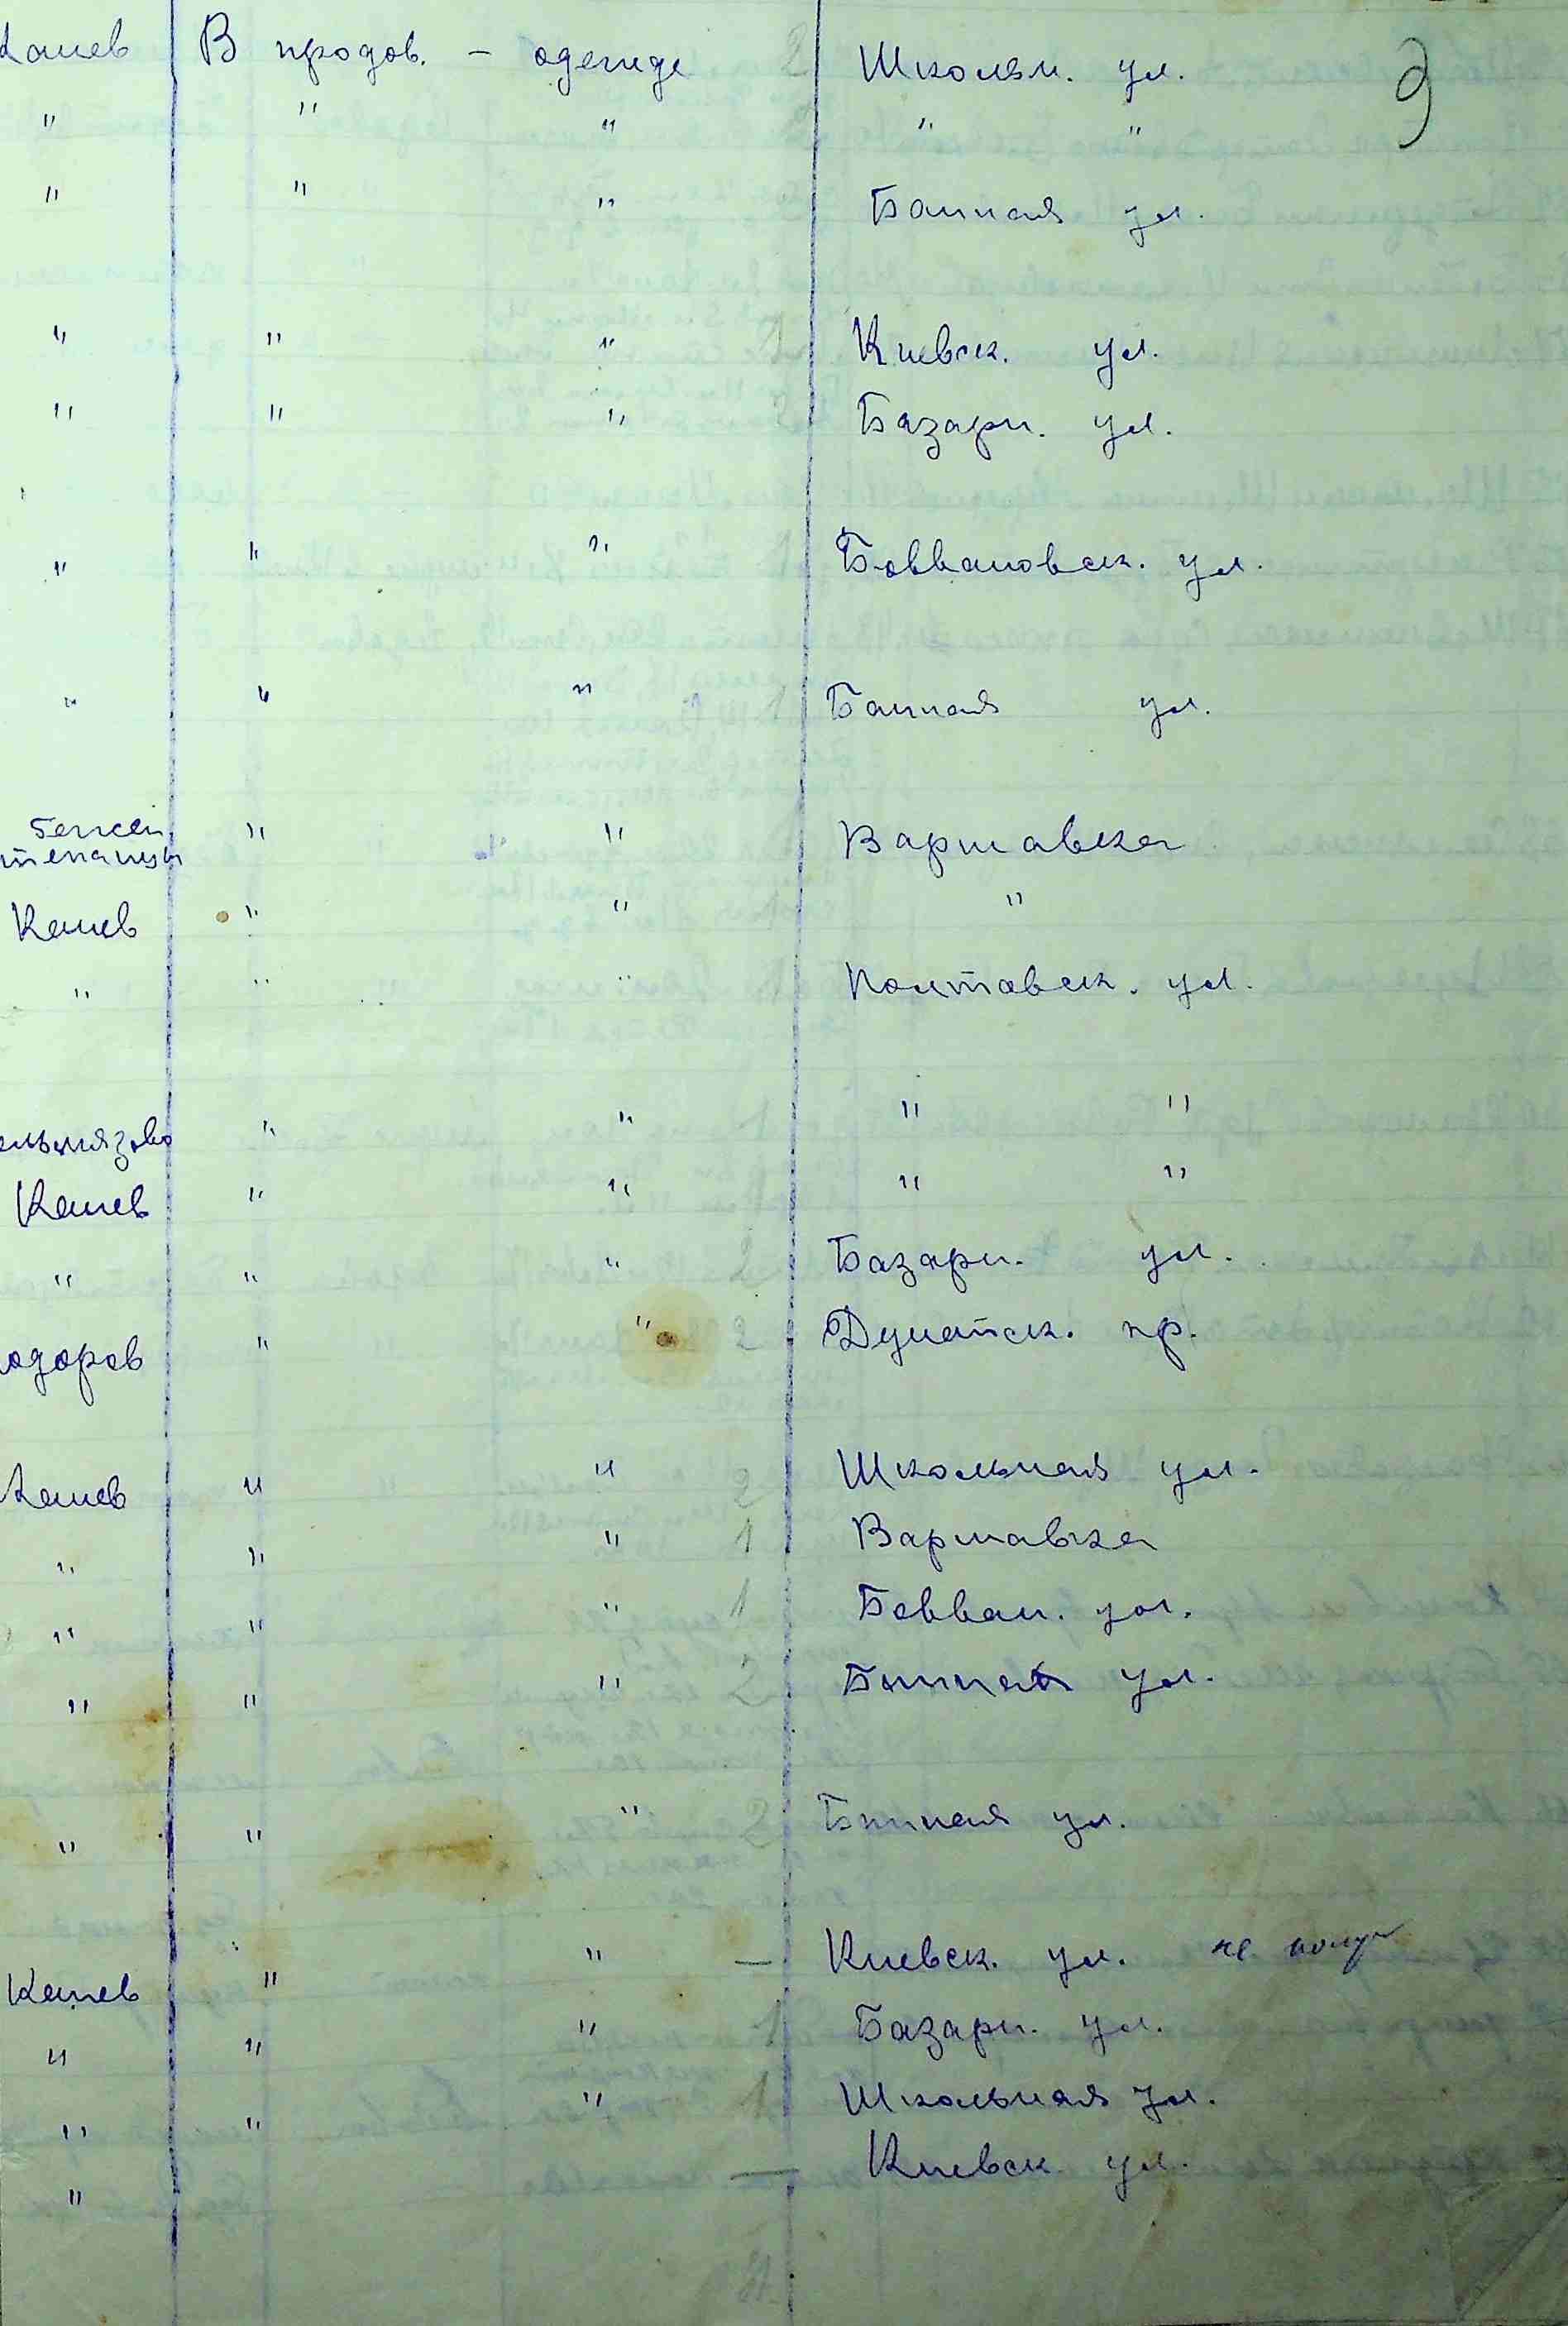 Канев В продов. - одежде 2 Школьн. ул. 9
" " " " "
" " " Банная ул.
" " " 1 Киевск. ул.
" " " Базарн. ул.
" " " Боввановск. ул.
" " " 1 Банная ул.
" " Варшавка
Канев " " "
" " " Полтавск. ул.
" " " "
Канев " " " "
" " " 2 Базарн. ул.
одоров " " 2 Дунайск. пр.
Канев " " 2 Школьная ул.
" " " 1 Варшавка
" " " 1 Бовван. ул.
" " " 2 Банная ул.
" " " 2 Банная ул.
Канев " " — Киевск. ул. не
" " " 1 Базарн. ул.
" " " 1 Школьная ул.
" — Киевск ул.